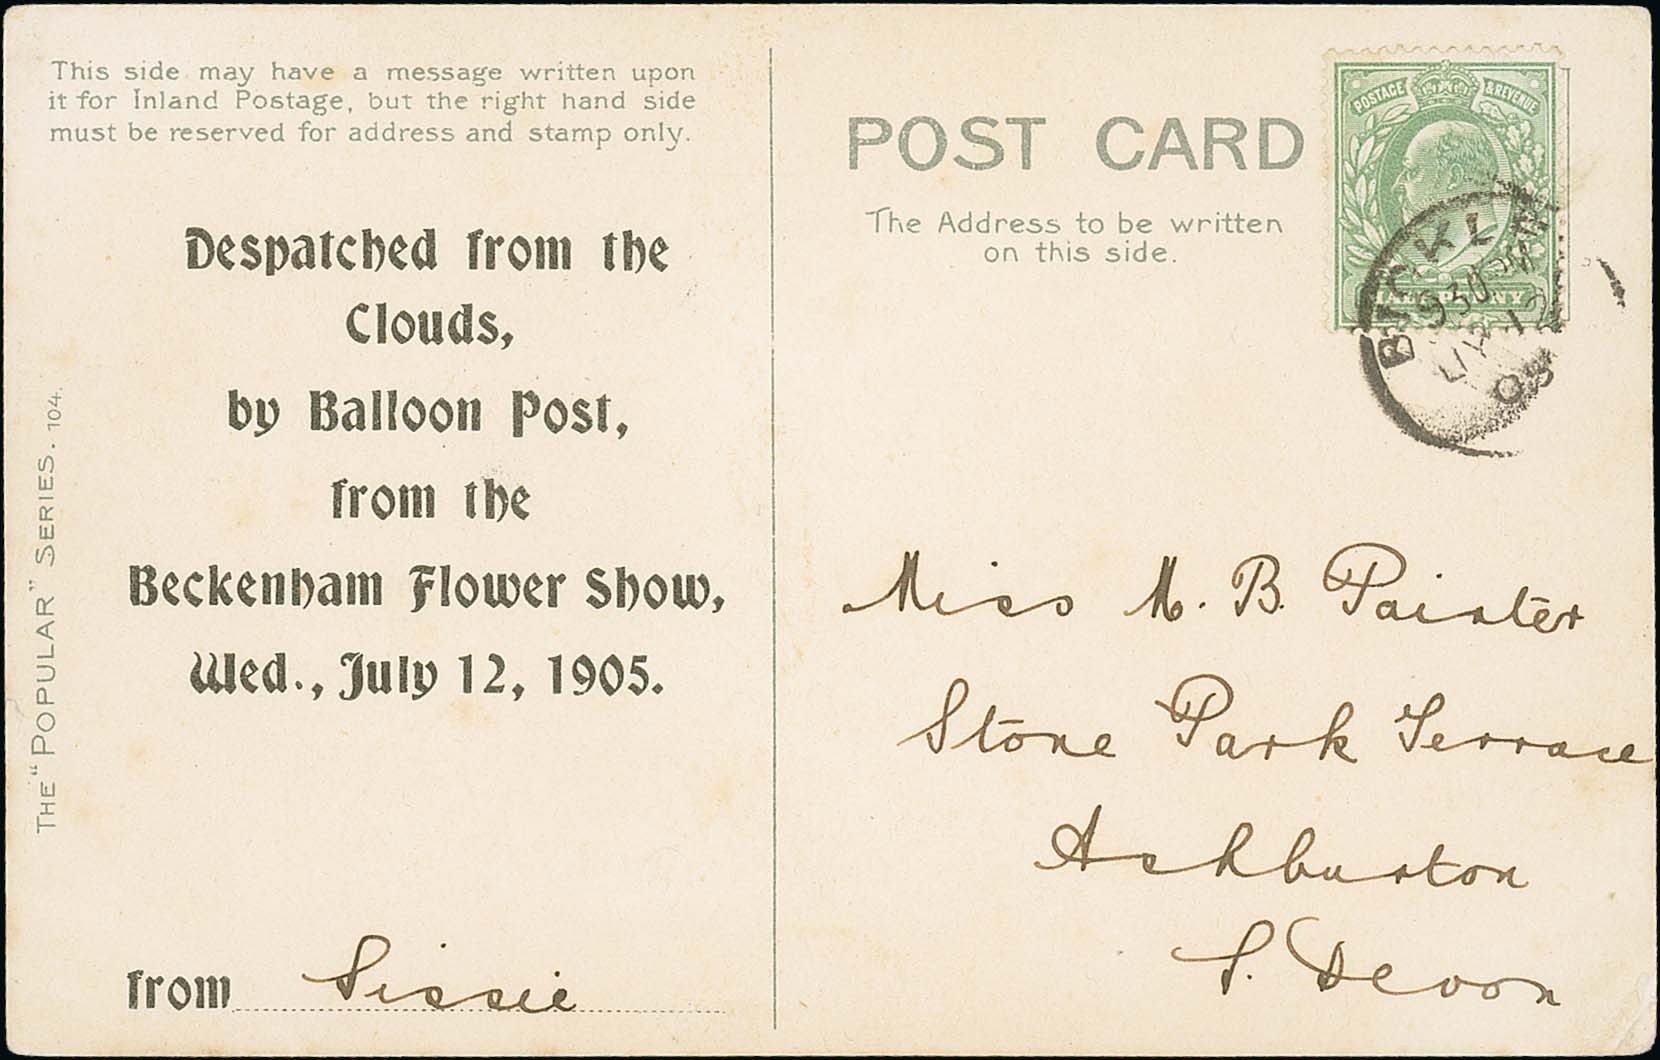 This side may have a message written upon
it for Inland Postage, but the right hand side
must be reserved for address and stamp only.
Despatched from the
Clouds,
by Balloon Post,
from the
Beckenham Flower Show,
Wed., July 12, 1905.
from Sissie
THE "POPULAR" SERIES. 104.
POST CARD
The Address to be written
on this side.
POSTAGE & REVENUE
HALFPENNY
9 30 PM
JY 12
05
Miss M. B. Painter
Stone Park Terrace
Ashburton
S. Devon